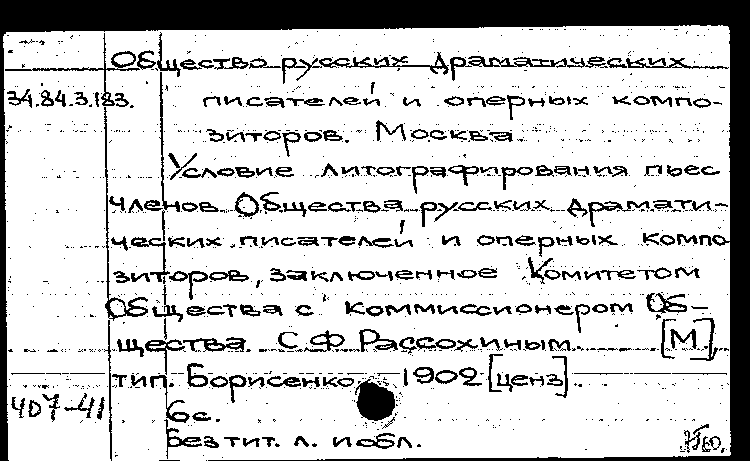 Общество русских драматических
34.84.3.183. писателей и оперных компо-
зиторов. Москва.
Условие литографирования пьес
членов Общества русских драмати-
ческих писателей и оперных компо
зиторов, заключенное Комитетом
Общества с коммиссионером Об-
щества С.Ф Рассохиным. [М],
тип. Борисенко, 1902 [ценз].
407-41
6с.
Без тит. л. и обл.